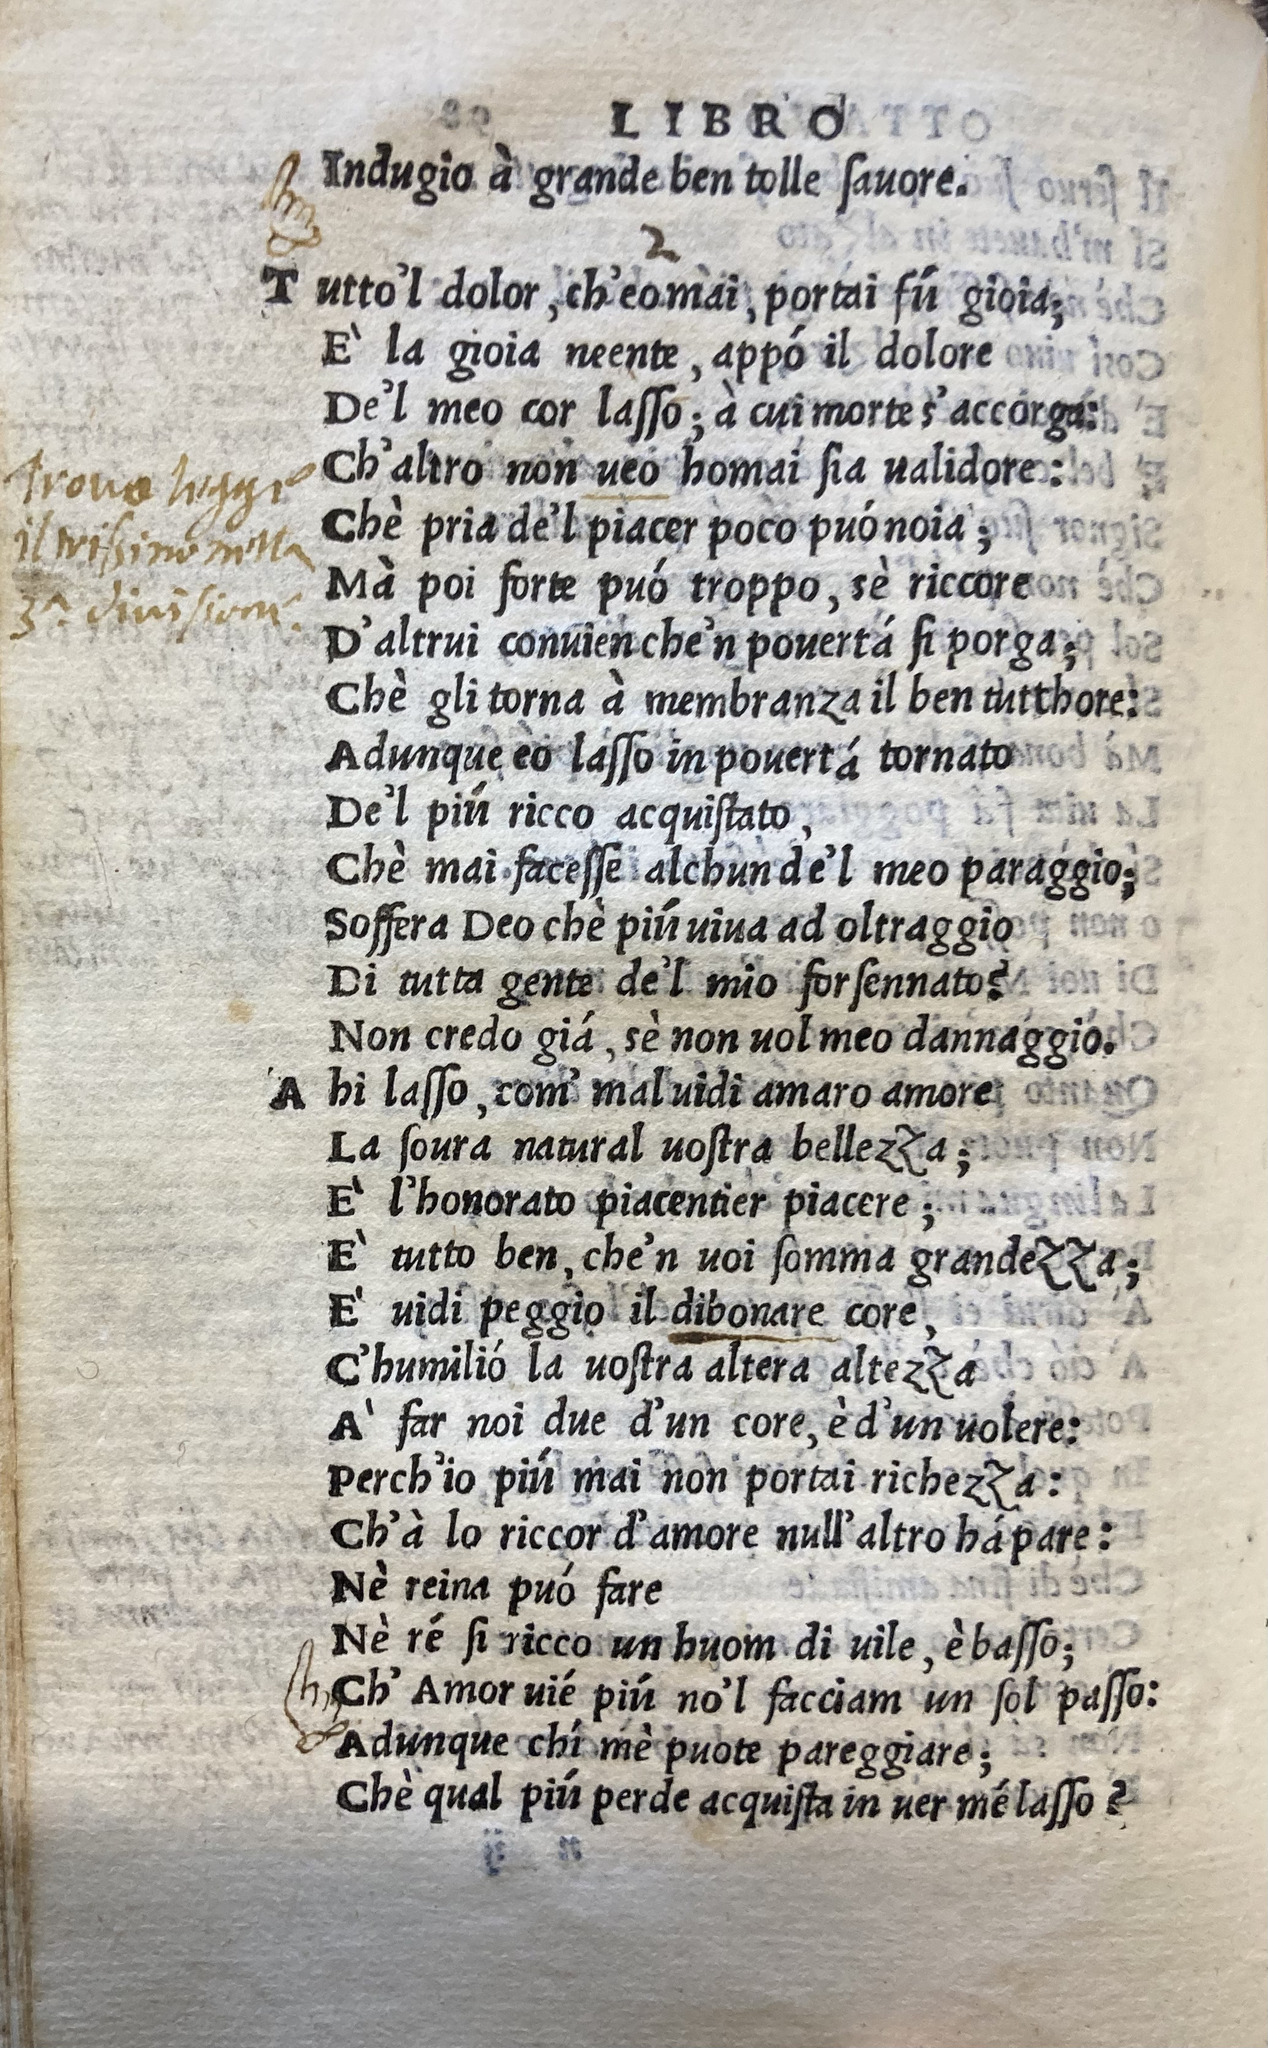 LIBRO
Indugio à grande ben tolle ſauore.
2
Tutto'l dolor, ch'eo mài, portai fú gioia;
E` la gioia neente, appó il dolore
De'l meo cor laſſo; à cui morte s'accorga:
Ch'altro non ueo homai ſia ualidore:
Chè pria de'l piacer poco puó noia;
Mà poi forte puó troppo, sè riccore
D'altrui conuien che'n pouertá ſi porga;
Chè gli torna à membranza il ben tutthore:
Adunque eo laſſo in pouertá tornato
De'l piú ricco acquiſtato,
Chè mai faceſſe alchun de'l meo paraggio;
Soffera Deo chè piú uiua ad oltraggio
Di tutta gente de'l mio forſennato?
Non credo giá, sè non uol meo dannaggio.
Ahi laſſo, com' mal uidi amaro amore
La ſoura natural uoſtra bellezza;
E` l'honorato piacentier piacere;
E` tutto ben, che'n uoi ſomma grandezza;
E` uidi peggio il dibonare core,
C'humilió la uoſtra altera altezza
A` far noi due d'un core, è d'un uolere:
Perch'io piú mai non portai richezza:
Ch'à lo riccor d'amore null'altro há pare:
Nè reina puó fare
Nè ré ſi ricco un huom di uile, è baſſo;
Ch' Amor uié piú no'l facciam un ſol paſſo:
Adunque chi mè puote pareggiare;
Chè qual piú perde acquiſta in uer mé laſſo?
Trouo leggi
il triſsino nella
3ª. diuisione.